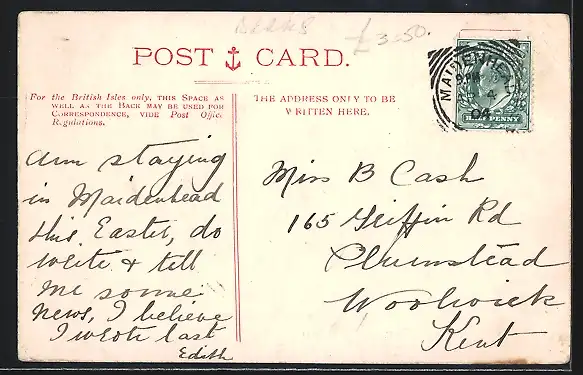 BERKS
£3.50.
POST CARD.
For the British Isles only, THIS SPACE AS
WELL AS THE BACK MAY BE USED FOR
CORRESPONDENCE, VIDE Post Office
Regulations.
THE ADDRESS ONLY TO BE
WRITTEN HERE.
MAIDENHEAD
4
04
HALFPENNY
Am staying
in Maidenhead
this Easter, do
write & tell
me some
News, I believe
I wrote last
Edith
Miss B Cash
165 Griffin Rd
Plumstead
Woolwick
Kent